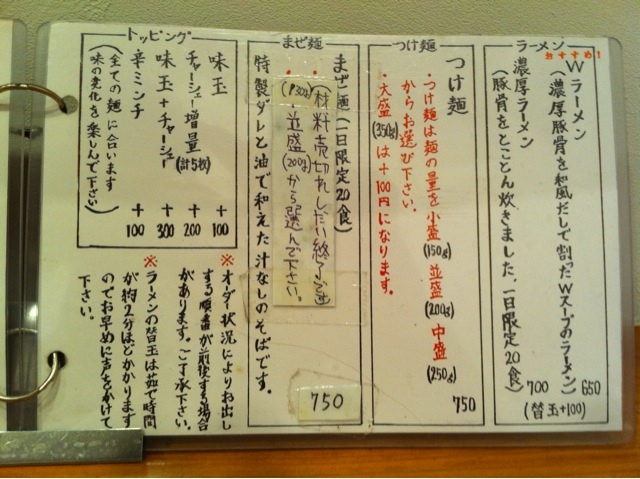 ラーメン
おすすめ!
Wラーメン
(濃厚豚骨を和風だしで割ったWスープのラーメン) 650
濃厚ラーメン
(豚骨をとことん炊きました、一日限定20食) 700
(替玉+100)
つけ麺
つけ麺
・つけ麺は麺の量を小盛(150g) 並盛(200g) 中盛(250g)
からお選び下さい。
・大盛(350g)は+100円になります。
750
まぜ麺
まぜ麺(一日限定20食)
(材料売切れしだい終了です
並盛(200g)から選んで下さい。
特製ダレと油で和えた汁なしのそばです。
750
トッピング
味玉 +100
チャーシュー増量(計5枚) +200
味玉+チャーシュー +300
辛ミンチ +100
(全ての麺に合います
味の変化を楽しんで下さい)
※オーダー状況によりお出し
する順番が前後する場合
があります。ご了承下さい。
※ラーメンの替玉は茹で時間
が約2分ほどかかります
のでお早めに声をかけて
下さい。